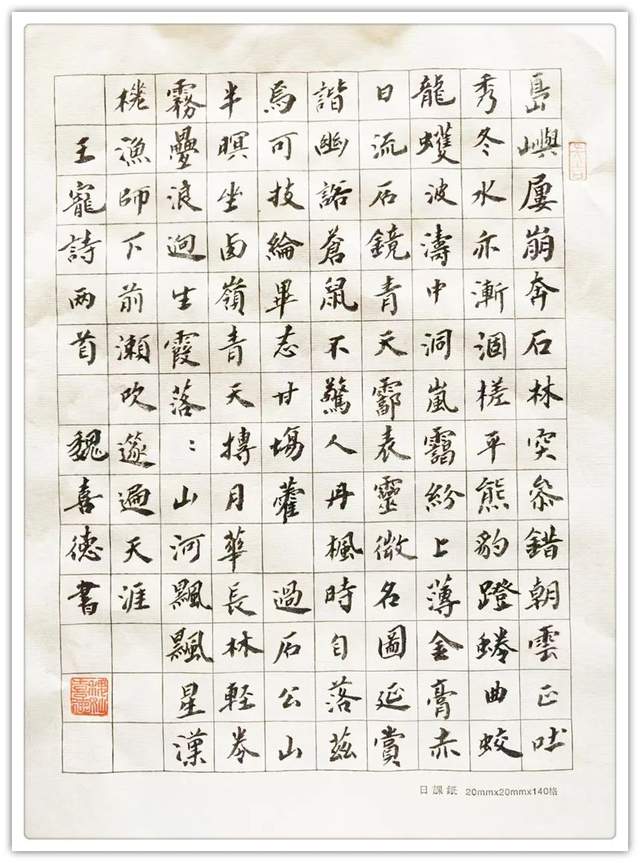 島嶼屢崩奔石林突叅錯朝雲正吐
秀冬水亦漸涸槎平熊豹蹬蜷曲蛟
龍蠖波濤中洞嵐靄紛上薄金膏赤
日流石鏡青天霩表靈微名圖延賞
諧幽諾蒼鼠不驚人丹楓時自落茲
焉可技綸畢志甘場藿 過石公山
半暝坐西嶺青天摶月華長林輕岑
霧疊浪迥生霞落〻山河飄飄星漢
槎漁師下前瀨吹篴遍天涯
王寵詩两首 魏喜德書
日課紙 20mmx20mmx140格